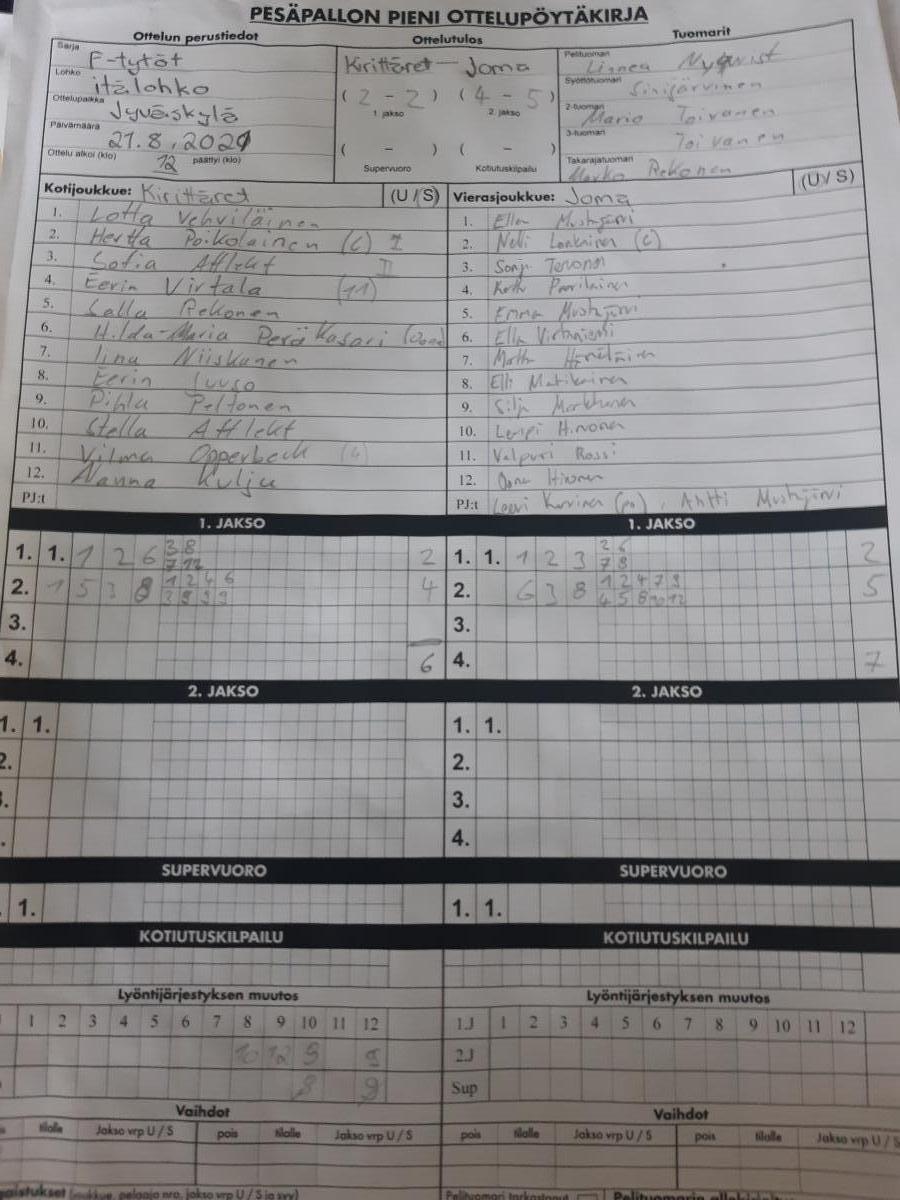 PESÄPALLON PIENI OTTELUPÖYTÄKIRJA
Ottelun perustiedot
Ottelutulos
Tuomarit
Sarja F-tytöt
Lohko itälohko
Ottelupaikka Jyväskylä
Päivämäärä 21.8.2021
Ottelu alkoi (klo) 12 päättyi (klo)
Kirittäret - Joma
(2 - 2) (4 - 5)
1. jakso 2. jakso
( - ) ( - )
Supervuoro Kotiutuskilpailu
Pelituomari Linnea Nyqvist
Syöttötuomari Sinijärvinen
2-tuomari Maria Toivanen
3-tuomari Toivanen
Takarajatuomari Marko Rekonen
Kotijoukkue: Kirittäret (U/S)
1. Lotta Vehviläinen
2. Hertta Poikolainen (C) I
3. Sofia Afflekt II
4. Eerin Virtala (11)
5. Salla Rekonen
6. Hilda-Maria Peräkasari
7. Iina Niiskanen
8. Eerin Juuso
9. Pihla Peltonen
10. Stella Afflekt
11. Vilma Opperbeck (4)
12. Nanna Kulju
PJ:t
Vierasjoukkue: Joma (U/S)
1. Ellen Mustjärvi
2. Nelli Lonkainen (C)
3. Sonja Tervonen
4.
5. Emma Mustjärvi
6. Ella
7.
8. Elli Matikainen
9. Silja Markkanen
10. Lempi Hirvonen
11. Valpuri Rossi
12. Oona Hirvonen
PJ:t Lauri Karvinen (pj), Antti Mustjärvi
1. JAKSO
1. 1. 1 2 6 3 8 2
7 12
2. 1 5 3 8 1 2 4 6 4
3 8 9 9
3.
4. 6
1. JAKSO
1. 1. 1 2 3 2 6 2
7 8
2. 6 3 8 1 2 4 7 9 5
4 5 8 10 12
3.
4. 7
2. JAKSO
1. 1.
2.
3.
.
2. JAKSO
1. 1.
2.
3.
4.
SUPERVUORO
1.
SUPERVUORO
1. 1.
KOTIUTUSKILPAILU
KOTIUTUSKILPAILU
Lyöntijärjestyksen muutos
1 2 3 4 5 6 7 8 9 10 11 12
10 12 9 9
8 9
Lyöntijärjestyksen muutos
1.J 1 2 3 4 5 6 7 8 9 10 11 12
2.J
Sup
Vaihdot
tilalle Jakso vrp U / S pois tilalle Jakso vrp U / S
Vaihdot
pois tilalle Jakso vrp U / S pois tilalle Jakso vrp U / S